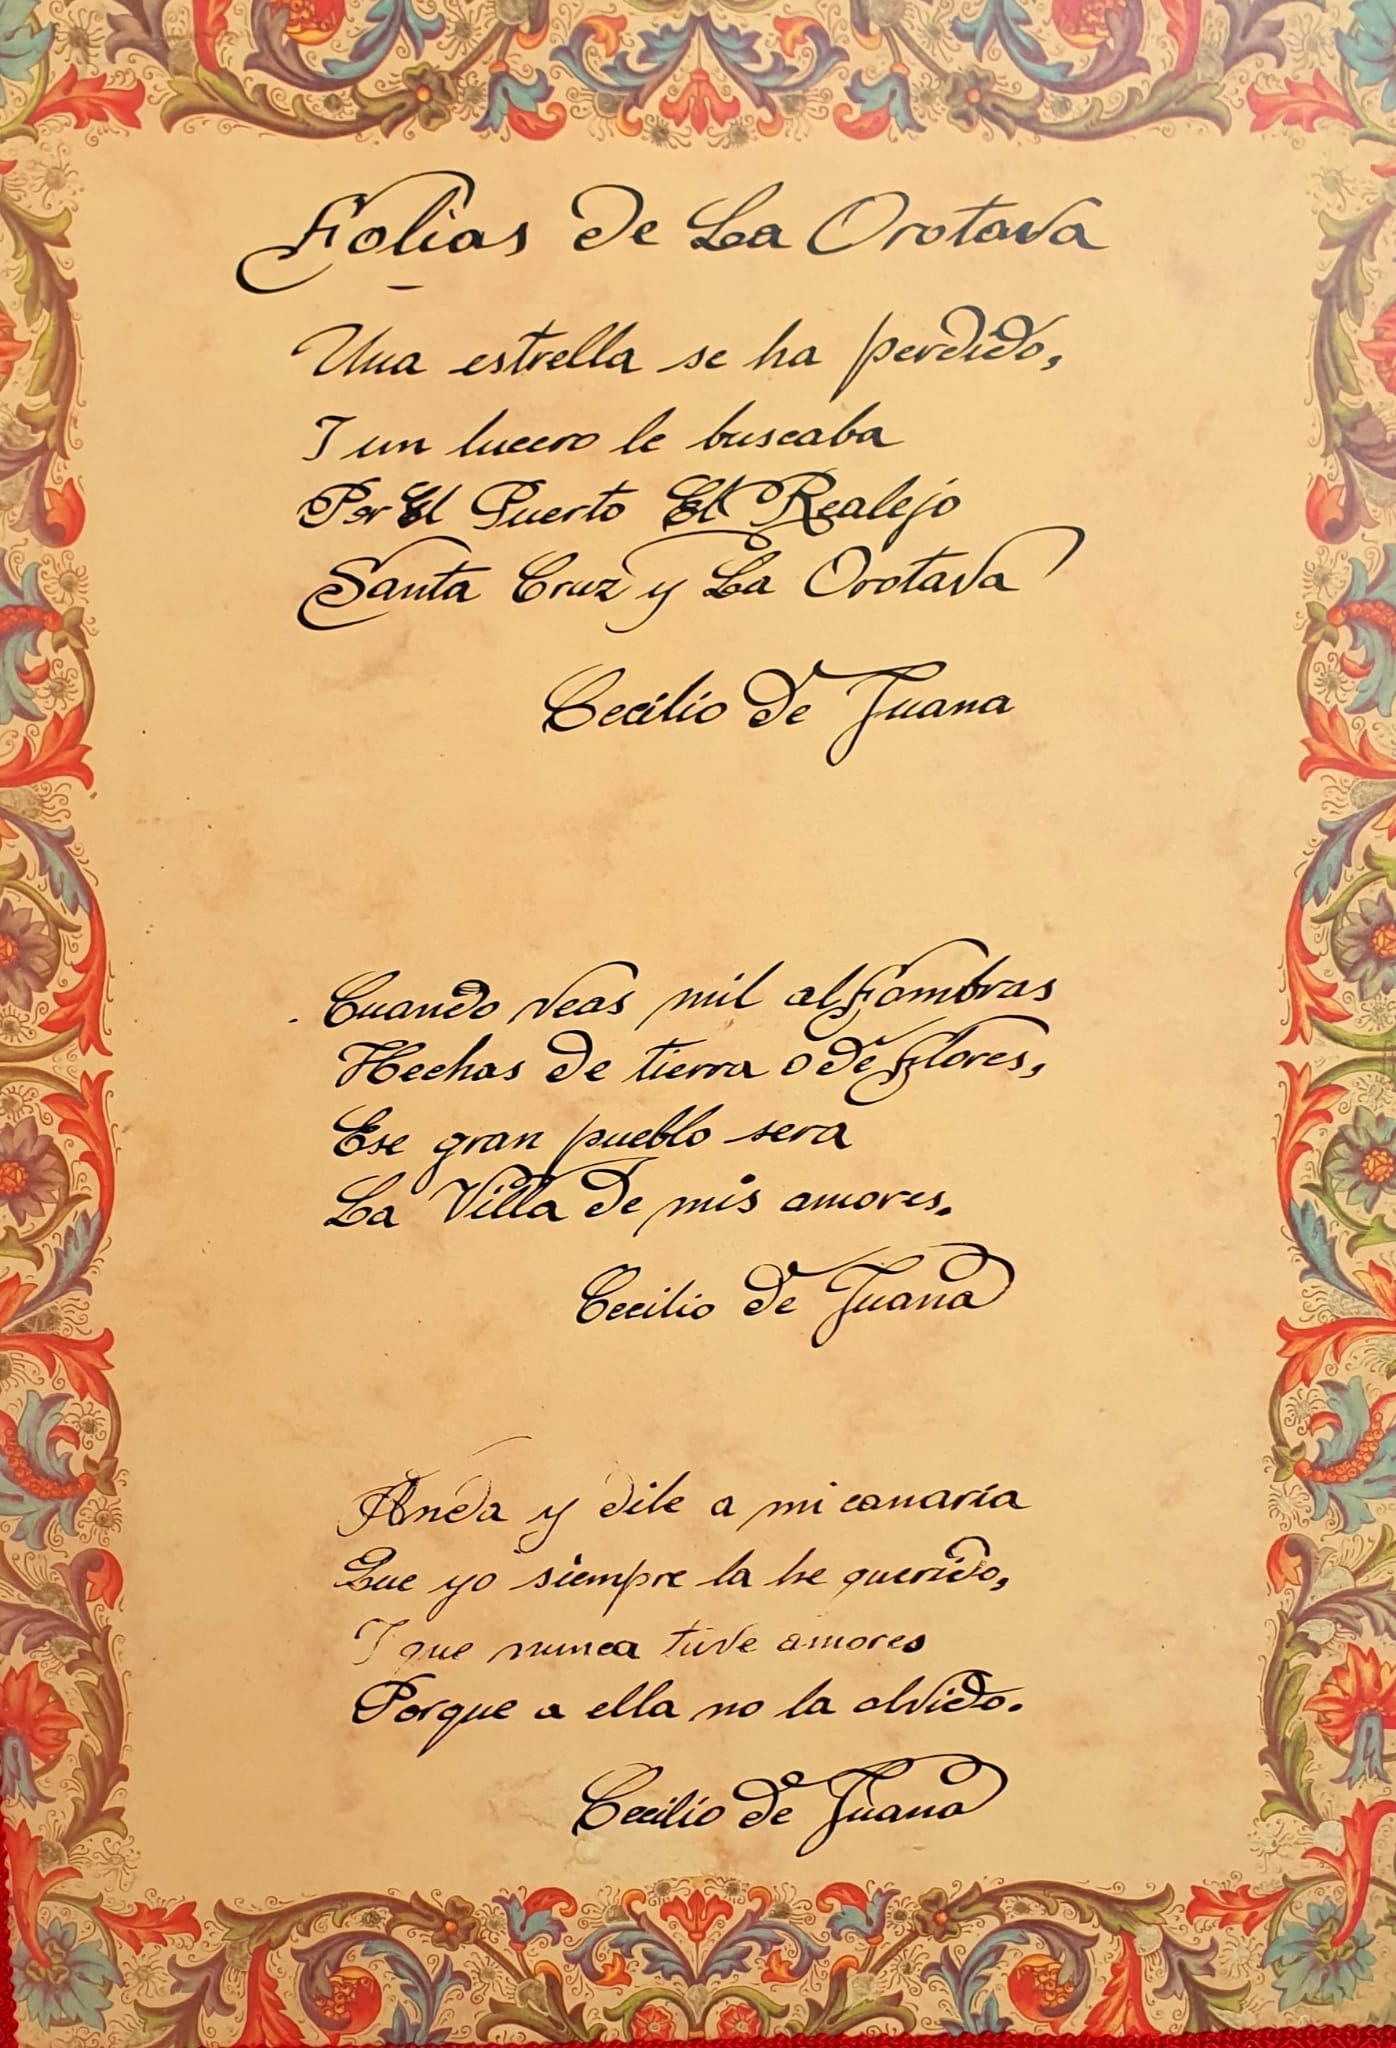 Folias de La Orotava
Una estrella se ha perdido,
I un lucero le buscaba
Por El Puerto El Realejo
Santa Cruz y La Orotava
Cecilio de Juana
Cuando veas mil alfombras
Hechas de tierra o de flores,
Ese gran pueblo sera
La Villa de mis amores.
Cecilio de Juana
Anda y dile a mi canaria
Que yo siempre la he querido,
I que nunca tuve amores
Porque a ella no la olvido.
Cecilio de Juana